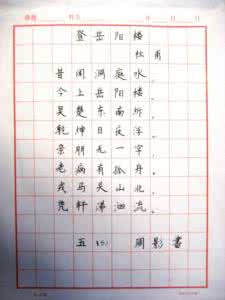 年 月 日
登岳阳楼
杜甫
昔闻洞庭水，
今上岳阳楼。
吴楚东南坼，
乾坤日夜浮。
亲朋无一字，
老病有孤舟。
戎马关山北，
凭轩涕泗流。
五 周影書